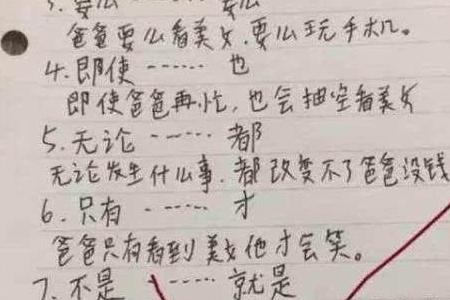 3.要么 …… 要么
爸爸要么看美女,要么玩手机。
4.即使 …… 也
即使爸爸再忙,也会抽空看美女
5.无论 …… 都
无论发生什么事,都改变不了爸爸没钱
6.只有 …… 才
爸爸只有看到美女他才会笑。
7.不是 …… 就是